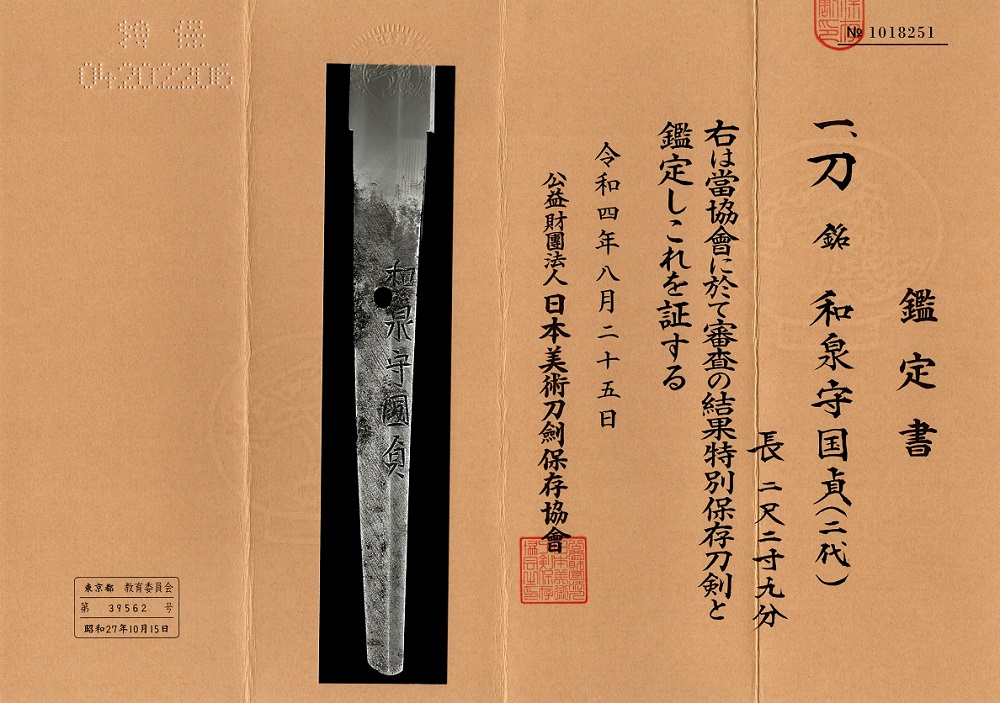 № 1018251
鑑定書
一、刀 銘 和泉守国貞(二代)
長 二尺二寸九分
右は當協會に於て審査の結果特別保存刀剣と
鑑定しこれを証する
令和四年八月二十五日
公益財團法人日本美術刀劍保存協會
和泉守國貞
04202206
東京都 教育委員会
第 39562 号
昭和27年10月15日